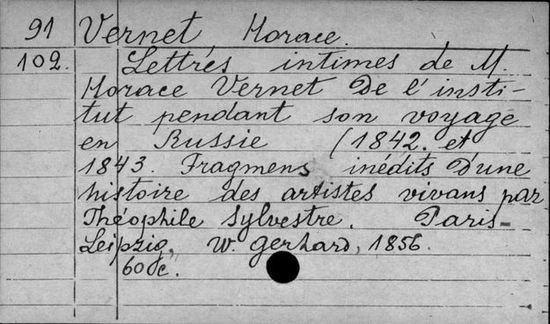 91 Vernet, Horace.
102. Lettres intimes de M.
Horace Vernet De l'insti-
tut pendant son voyage
en Russie (1842. et
1843. Fragmens inédits d'une
histoire des artistes vivans par
Théophile Sylvestre. Paris-
Leipzig, W. Gerhard, 1856.
60 с.